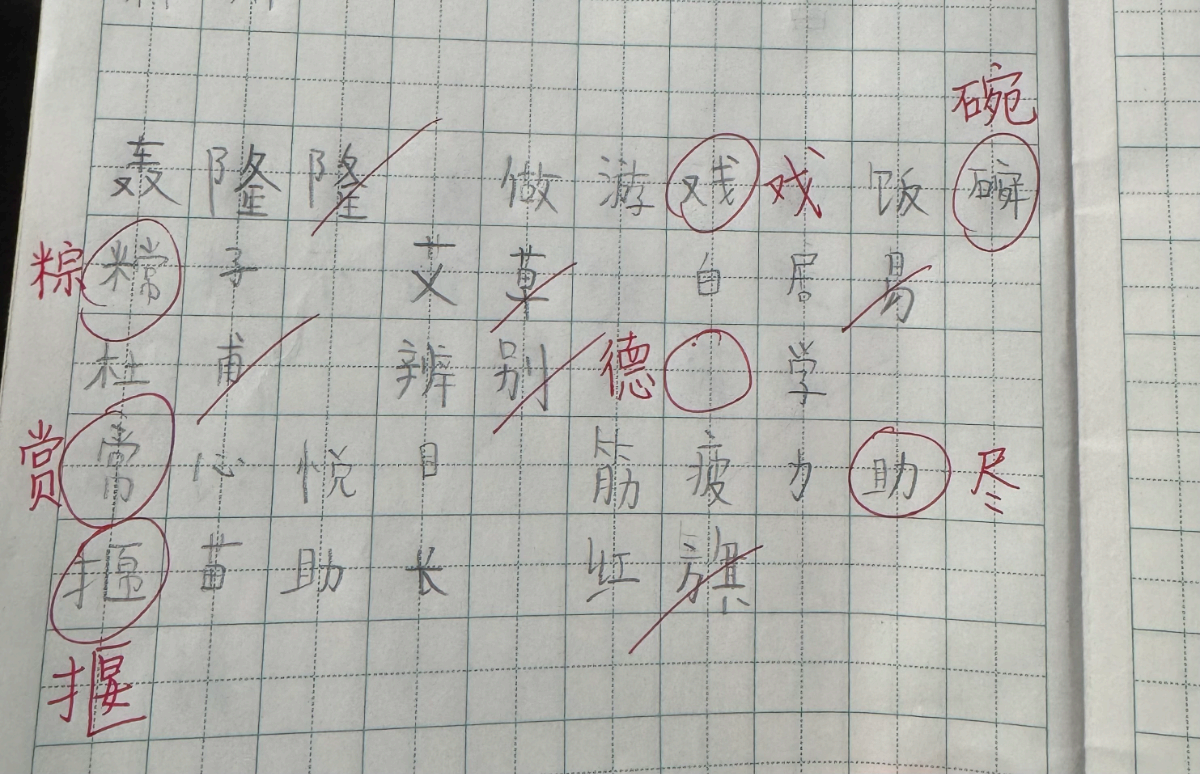 碗
轰隆隆 做游戏 饭
粽 子 艾草 白居易
杜甫 辨别 德 学
赏 常心悦目 筋疲力助 尽
揠 苗助长 红旗
揠